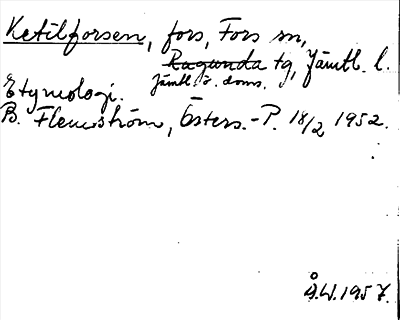 Ketilforsen, fors, Fors sn,
Ragunda tg, Jämtl. l.
Jämtl. ö. doms.
Etymologi.
B. Flemström, Östers.-P. 18/2 1952.
Å.W. 1957.